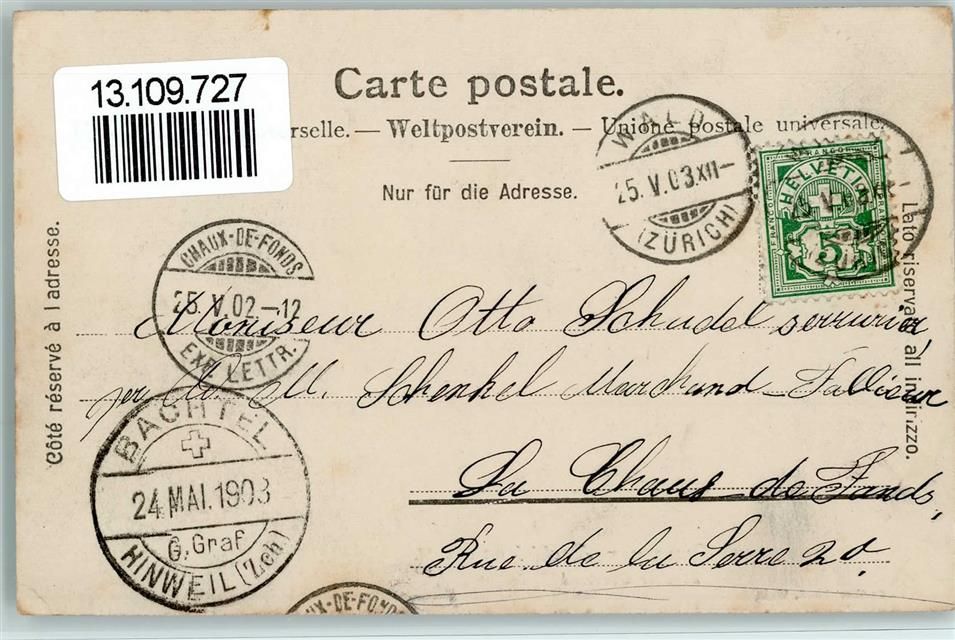 13.109.727
Carte postale.
rselle. — Weltpostverein. — Unione postale universale.
Nur für die Adresse.
Côté réservé à l adresse.
Lato riservato all indirizzo.
WALD
25.V.03.XII—
(ZÜRICH)
FRANCO
HELVETIA
5
CHAUX-DE-FONDS
25.V.02.–12
EXP. LETTR.
Monsieur Otto Schudel serrurier,
M. M. Schenkel Marchand Tailleur
La Chaux-de-Fonds,
Rue de la Serre 20.
BACHTEL
24.MAI.1903
G. Graf
HINWEIL (Zch)
AUX-DE-FON